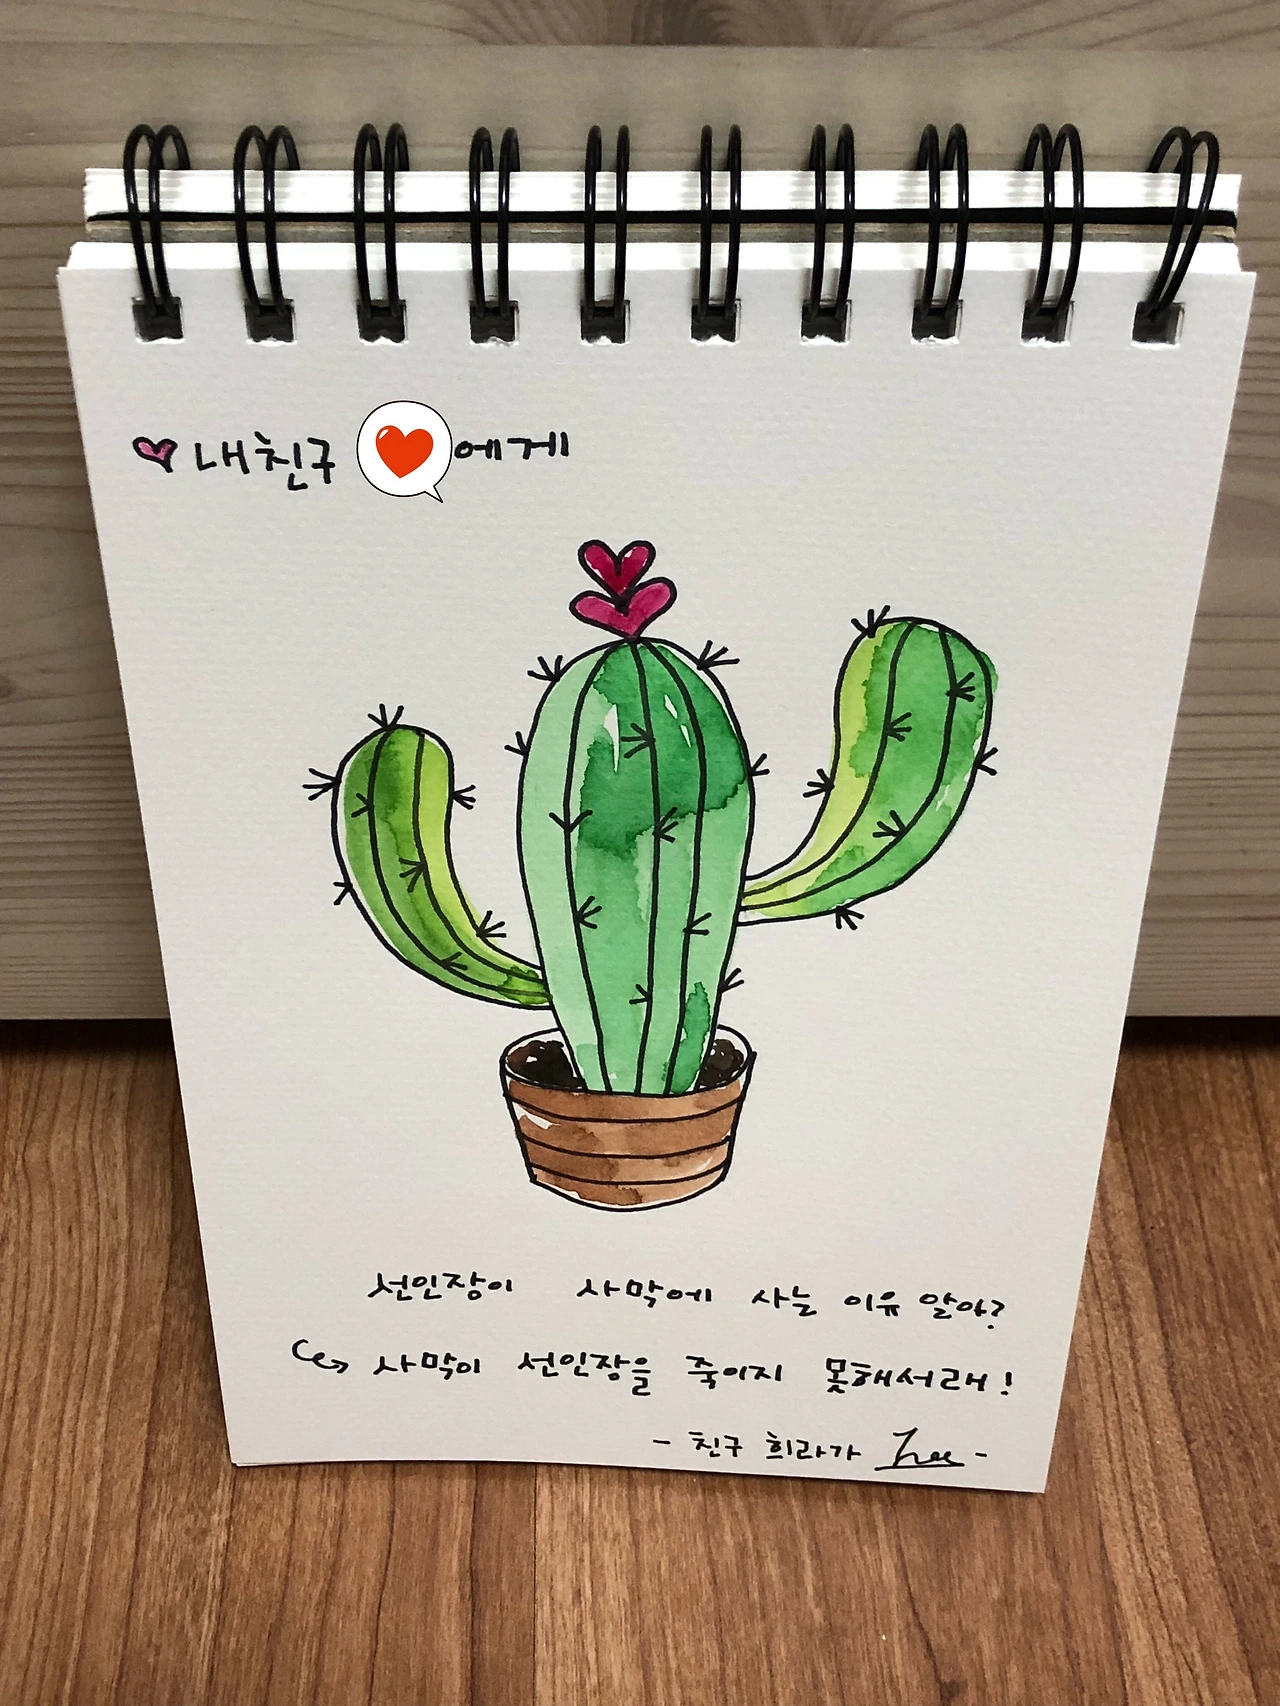 ♥ 내친구 ❤에게
선인장이 사막에 사는 이유 알아?
↪ 사막이 선인장을 죽이지 못해서래!
- 친구 희라가 Hee -